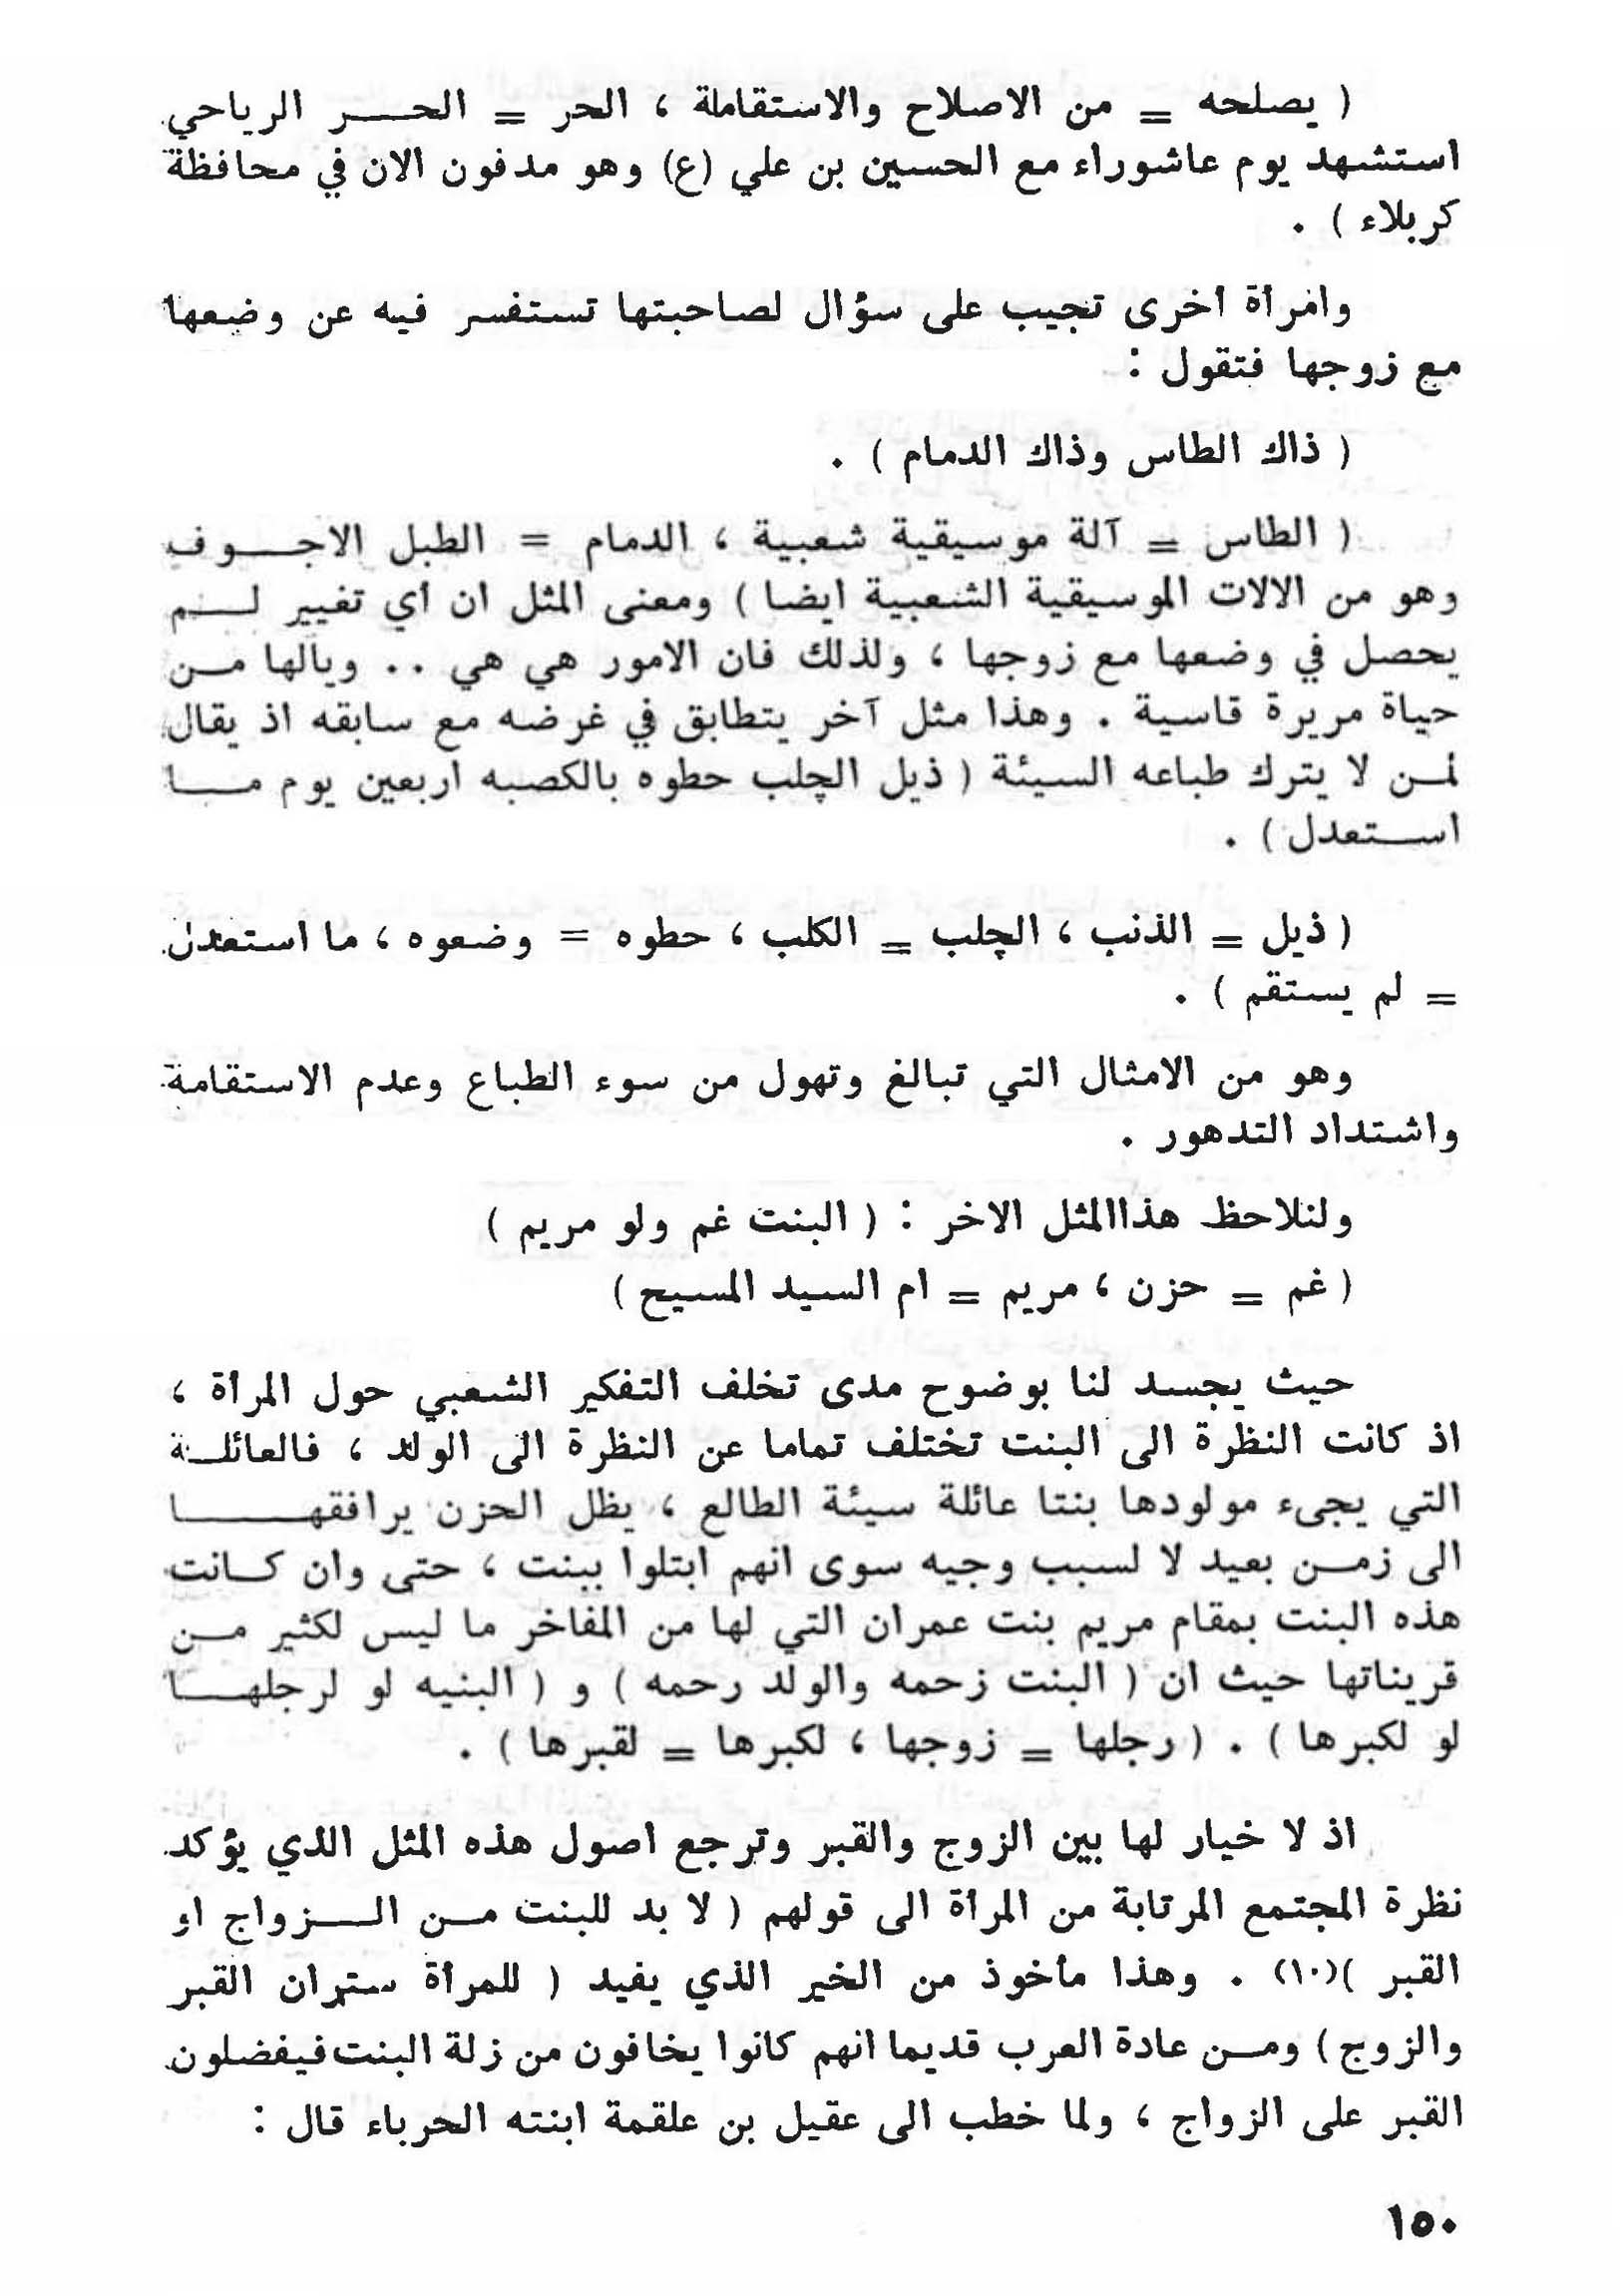 ( يصلحه = من الاصلاح والاستقاملة ، الحر = الحر الرياحي
استشهد يوم عاشوراء مع الحسين بن علي (ع) وهو مدفون الان في محافظة
كربلاء ) .
وامرأة أخرى تجيب على سؤال لصاحبتها تستفسر فيه عن وضعها
مع زوجها فتقول :
( ذاك الطاس وذاك الدمام ) .
( الطاس = آلة موسيقية شعبية ، الدمام = الطبل الاجوف
وهو من الالات الموسيقية الشعبية ايضا ) ومعنى المثل ان أي تغيير لم
يحصل في وضعها مع زوجها ، ولذلك فان الامور هي هي .. ويالها من
حياة مريرة قاسية . وهذا مثل آخر يتطابق في غرضه مع سابقه اذ يقال
لمن لا يترك طباعه السيئة ( ذيل الچلب حطوه بالكصبه اربعين يوم ما
استعدل ) .
( ذيل = الذنب ، الچلب = الكلب ، حطوه = وضعوه ، ما استعدل
= لم يستقم ) .
وهو من الامثال التي تبالغ وتهول من سوء الطباع وعدم الاستقامة
واشتداد التدهور .
ولنلاحظ هذاالمثل الاخر : ( البنت غم ولو مريم )
( غم = حزن ، مريم = ام السيد المسيح )
حيث يجسد لنا بوضوح مدى تخلف التفكير الشعبي حول المرأة ،
اذ كانت النظرة الى البنت تختلف تماما عن النظرة الى الولد ، فالعائلة
التي يجىء مولودها بنتا عائلة سيئة الطالع ، يظل الحزن يرافقها
الى زمن بعيد لا لسبب وجيه سوى انهم ابتلوا ببنت ، حتى وان كانت
هذه البنت بمقام مريم بنت عمران التي لها من المفاخر ما ليس لكثير من
قريناتها حيث ان ( البنت زحمه والولد رحمه ) و ( البنيه لو لرجلها
لو لكبرها ) . ( رجلها = زوجها ، لكبرها = لقبرها ) .
اذ لا خيار لها بين الزوج والقبر وترجع اصول هذه المثل الذي يؤكد
نظرة المجتمع المرتابة من المرأة الى قولهم ( لا بد للبنت من الزواج او
القبر )(١٠) . وهذا مأخوذ من الخبر الذي يفيد ( للمرأة ستران القبر
والزوج ) ومن عادة العرب قديما انهم كانوا يخافون من زلة البنت فيفضلون
القبر على الزواج ، ولما خطب الى عقيل بن علقمة ابنته الحرباء قال :
١٥٠